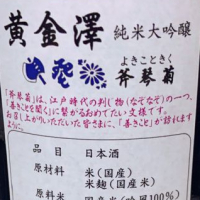 黄金澤 純米大吟醸
よきこときく
斧琴菊
「斧琴菊」は、江戸時代の判じ物(なぞなぞ)の一つ、
「善きことを聞く」に繋がるおめでたい文様です。
お召し上がりいただいた皆さまに、「善きこと」が訪れます
ように。
品目 日本酒
原材料 米(国産)
米麹(国産米)
原料米 国産米(吟風100%)